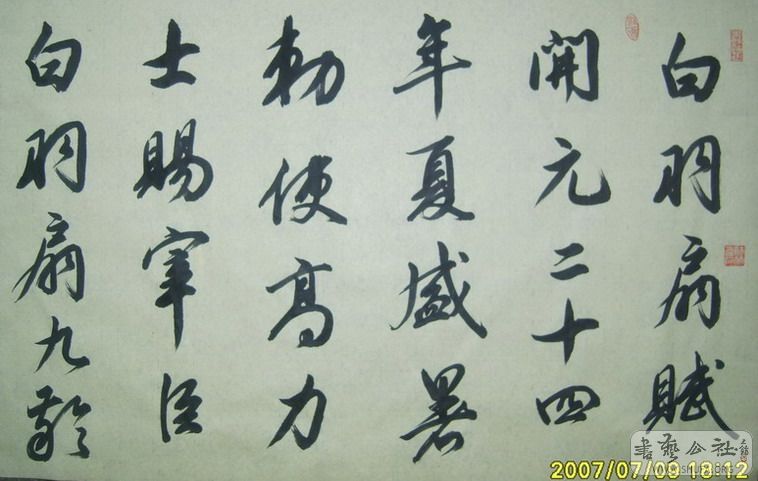 白羽扇賦
開元二十四
年夏盛暑
勑使高力
士賜宰臣
白羽扇九齡
書藝公社
2007/07/09 18:12